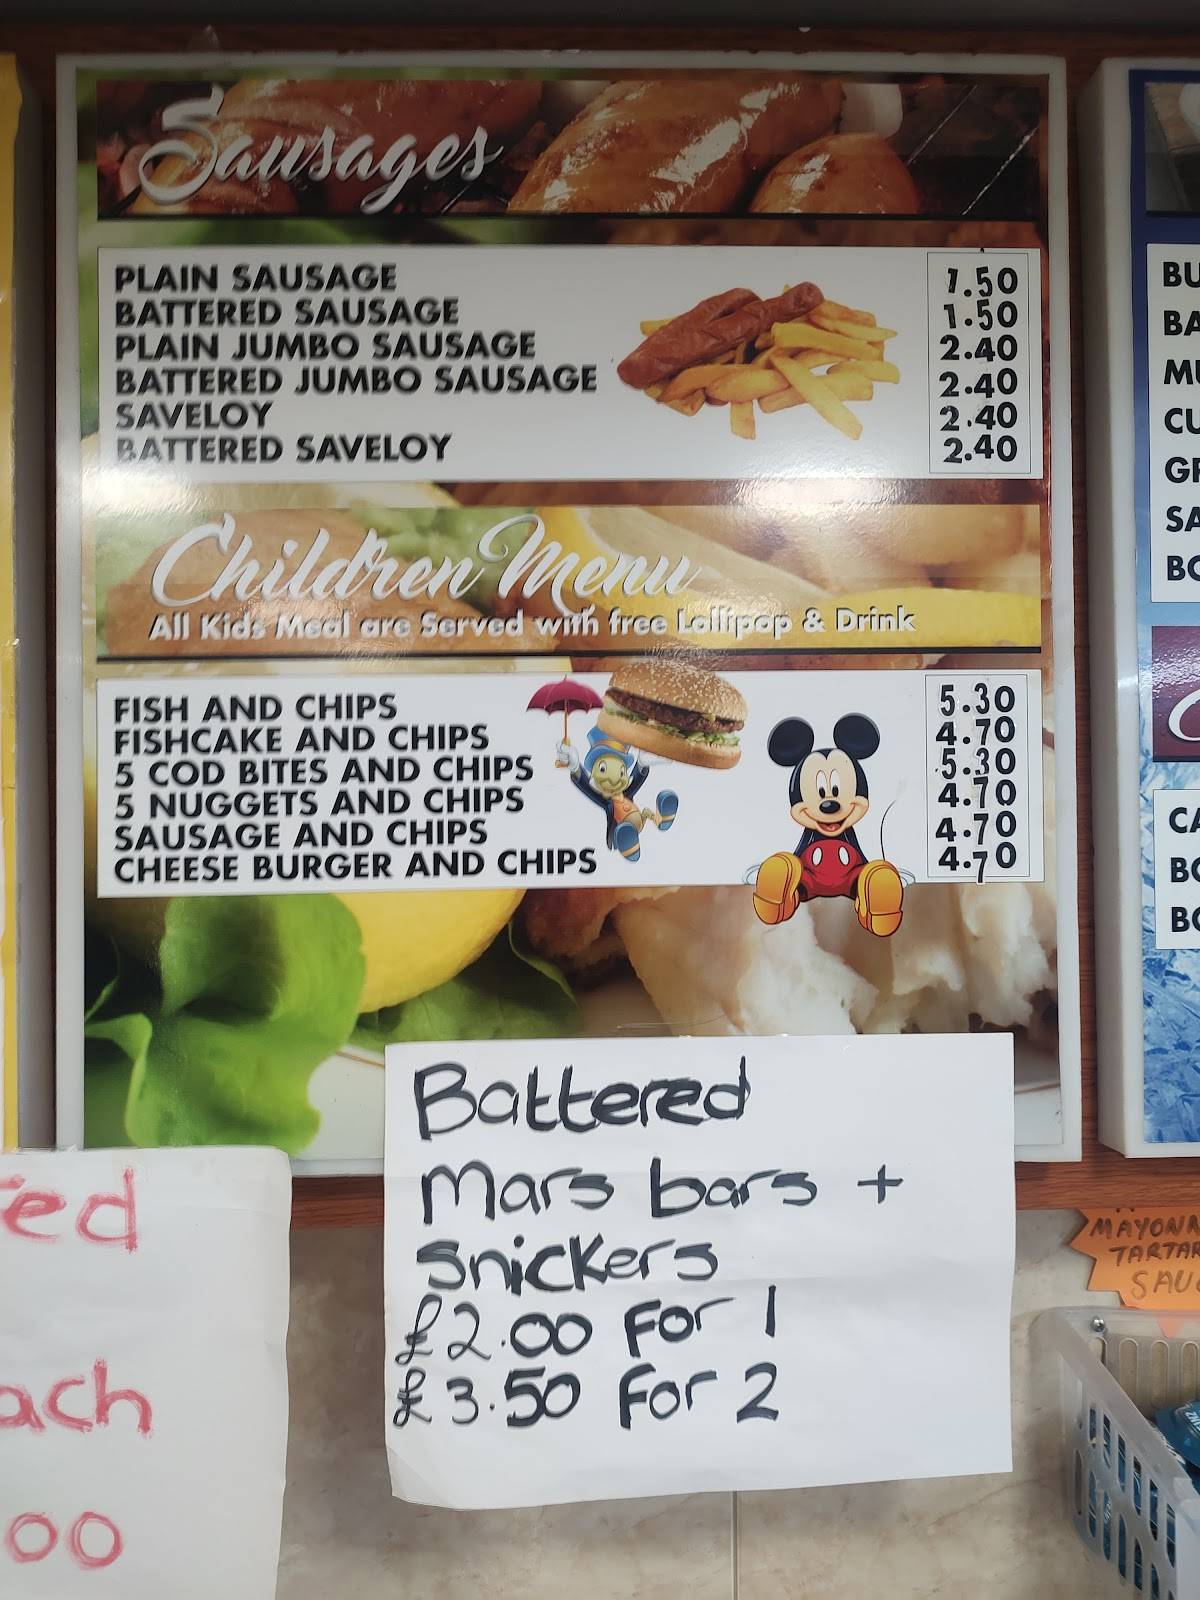 Sausages
PLAIN SAUSAGE 1.50
BATTERED SAUSAGE 1.50
PLAIN JUMBO SAUSAGE 2.40
BATTERED JUMBO SAUSAGE 2.40
SAVELOY 2.40
BATTERED SAVELOY 2.40
Children Menu
All Kids Meal are Served with free Lollipop & Drink
FISH AND CHIPS 5.30
FISHCAKE AND CHIPS 4.70
5 COD BITES AND CHIPS 5.30
5 NUGGETS AND CHIPS 4.70
SAUSAGE AND CHIPS 4.70
CHEESE BURGER AND CHIPS 4.70
Battered
Mars bars +
Snickers
£2.00 For 1
£3.50 For 2
ed
ach
00
BU
BA
MU
CU
GR
SA
BO
CA
BO
BO
MAYONN
TARTAR
SAUC